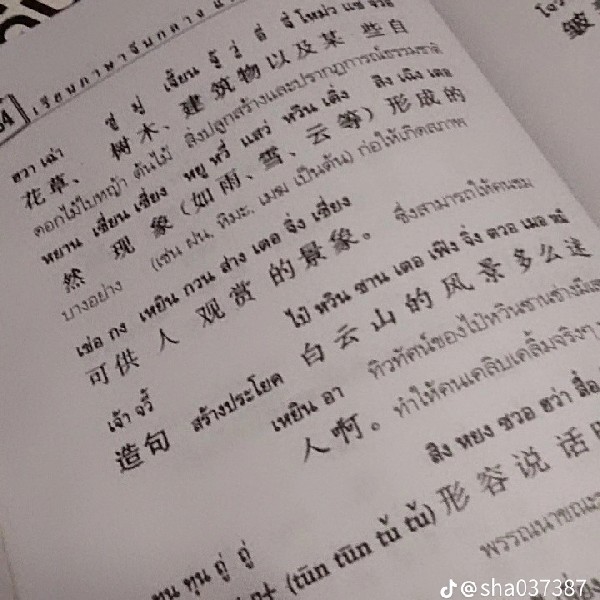 เรียนภาษาจีนกลาง
ฮวา เฉ่า ซู่ มู่ เจี้ยน จู้ อู้ อี่ จี๋ โหม่ว
花草、树木、建筑物以及某些自
ดอกไม้ใบหญ้า ต้นไม้ สิ่งปลูกสร้างและปรากฏการณ์ธรรมชาติ
หยาน เซี่ยน เซี่ยง หยู หวี่ แสว่ หวิน เติ่ง สิง เฉิง เตอ
然现象(如雨、雪、云等)形成的
บางอย่าง (เช่น ฝน, หิมะ, เมฆ เป็นต้น) ก่อให้เกิดสภาพ
เข่อ กง เหยิน กวน ส่าง เตอ จิ่ง เซี่ยง
可供人观赏的景象。 ซึ่งสามารถให้คนชม
เจ้า จวี้ ไป๋ หวิน ซาน เตอ เฟิง จิ่ง ตวอ เมอ
造句 สร้างประโยค 白云山的风景多么迷
เหยิน อา ทิวทัศน์ของไป๋หวินซานช่าง
人啊。 ทำให้คนเคลิบเคลิ้มจริงๆ
สิง หยง ซวอ ฮว่า สือ
(tūn tūn tǔ tǔ) 形容说话时
ทุน ทุน ถู่ ถู่ พรรณนาขณะ
@sha037387